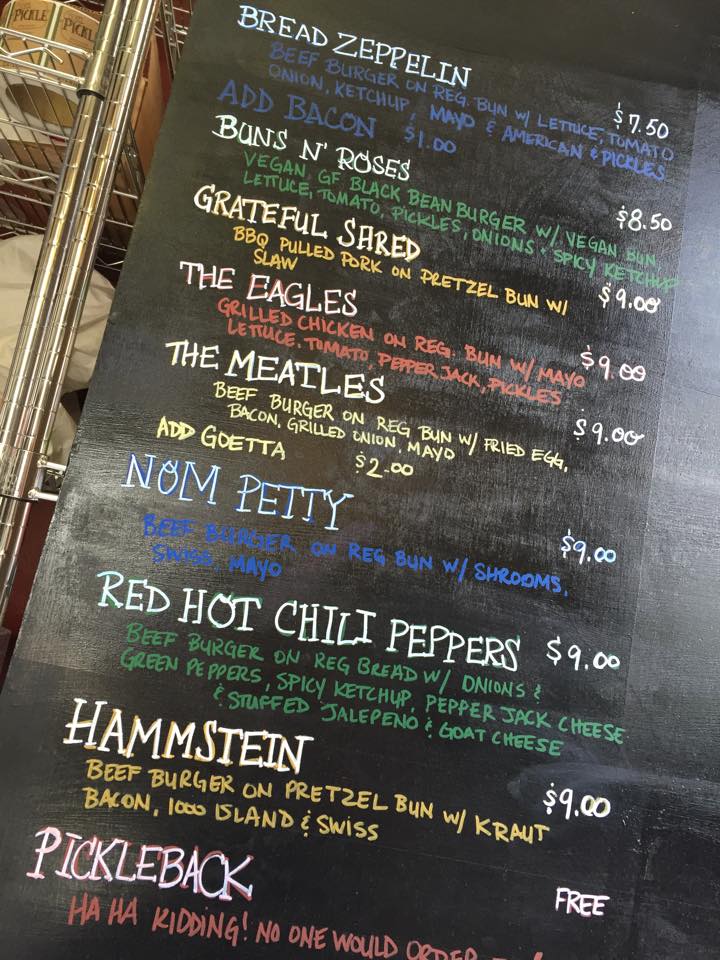 PICKLE
PICKL
BREAD ZEPPELIN
BEEF BURGER ON REG. BUN W/ LETTUCE, TOMATO
$7.50
ONION, KETCHUP, MAYO & AMERICAN & PICKLES
ADD BACON $1.00
BUNS N' ROSES
$8.50
VEGAN, GF BLACK BEAN BURGER W/ VEGAN BUN
LETTUCE, TOMATO, PICKLES, ONIONS & SPICY KETCHUP
GRATEFUL SHRED
$9.00
BBQ PULLED PORK ON PRETZEL BUN W/
SLAW
THE EAGLES
$9.00
GRILLED CHICKEN ON REG. BUN W/ MAYO
LETTUCE, TOMATO, PEPPER JACK, PICKLES
THE MEATLES
$9.00
BEEF BURGER ON REG BUN W/ FRIED EGG,
BACON, GRILLED ONION, MAYO
ADD GOETTA $2.00
NOM PETTY
$9.00
BEEF BURGER ON REG BUN W/ SHROOMS,
SWISS, MAYO
RED HOT CHILI PEPPERS $9.00
BEEF BURGER ON REG BREAD W/ ONIONS &
GREEN PEPPERS, SPICY KETCHUP, PEPPER JACK CHEESE
& STUFFED JALEPENO & GOAT CHEESE
HAMMSTEIN
$9.00
BEEF BURGER ON PRETZEL BUN W/ KRAUT
BACON, 1000 ISLAND & SWISS
PICKLEBACK
FREE
HA HA KIDDING! NO ONE WOULD ORDER